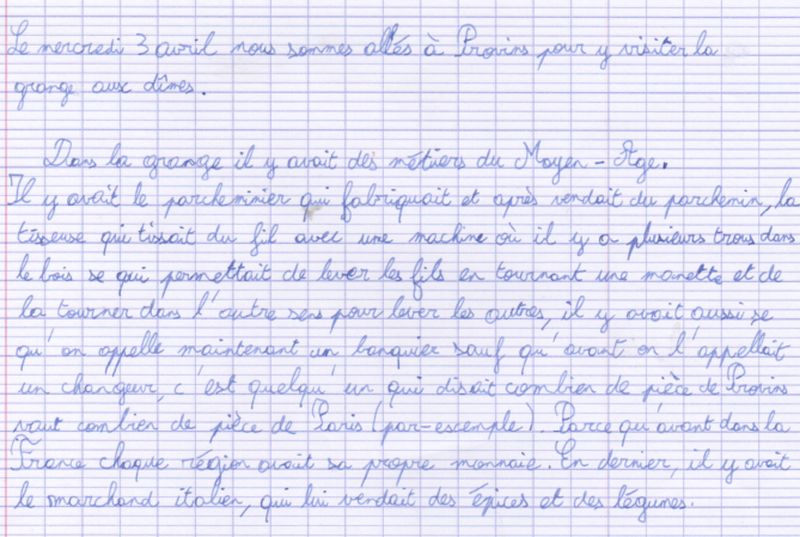 Le mercredi 3 avril nous sommes allés à Provins pour y visiter la
grange aux dîmes.
Dans la grange il y avait des métiers du Moyen-Age.
Il y avait le parcheminier qui fabriquait et après vendait du parchemin, la
tisseuse qui tissait du fil avec une machine où il y a plusieurs trous dans
le bois se qui permettait de lever les fils en tournant une manette et de
la tourner dans l'autre sens pour lever les autres, il y avait aussi se
qu'on appelle maintenant un banquier sauf qu'avant on l'appellait
un changeur, c'est quelqu'un qui disait combien de pièce de Provins
vaut combien de pièce de Paris (par-escemple). Parce qu'avant dans la
France chaque région avait sa propre monnaie. En dernier, il y avait
le marchand italien, qui lui vendait des épices et des légumes.